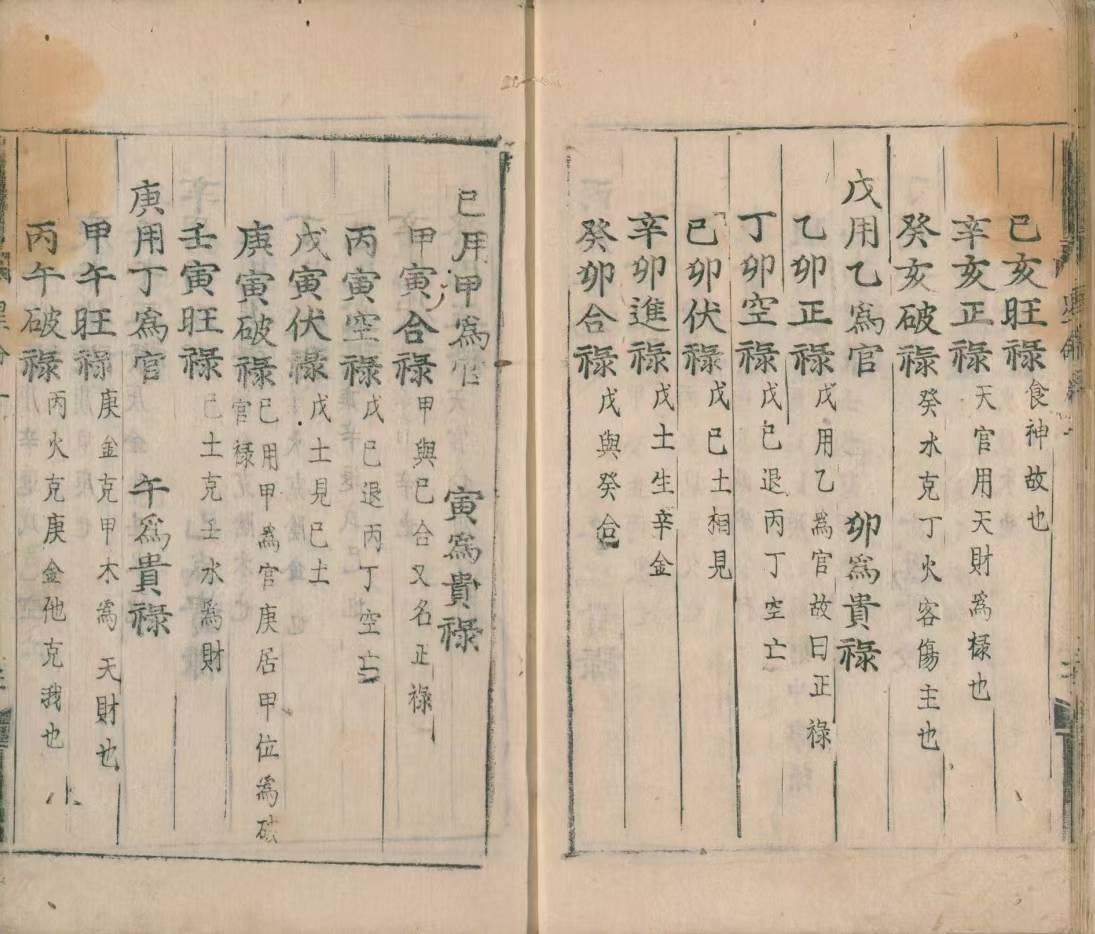 己亥旺祿食神故也
辛亥正祿天官用天財爲祿也
癸亥破祿癸水克丁火客傷主也
戊用乙爲官 卯爲貴祿
乙卯正祿戊用乙爲官故曰正祿
丁卯空祿戊己退丙丁空亡
己卯伏祿戊己土相見
辛卯進祿戊土生辛金
癸卯合祿戊與癸合
己用甲爲官 寅爲貴祿
甲寅合祿甲與己合又名正祿
丙寅空祿戊己退丙丁空亡
戊寅伏祿戊土見己土
庚寅破祿己用甲爲官庚居甲位爲破官祿
壬寅旺祿己土克壬水爲財
庚用丁爲官 午爲貴祿
甲午旺祿庚金克甲木爲天財也
丙午破祿丙火克庚金他克我也